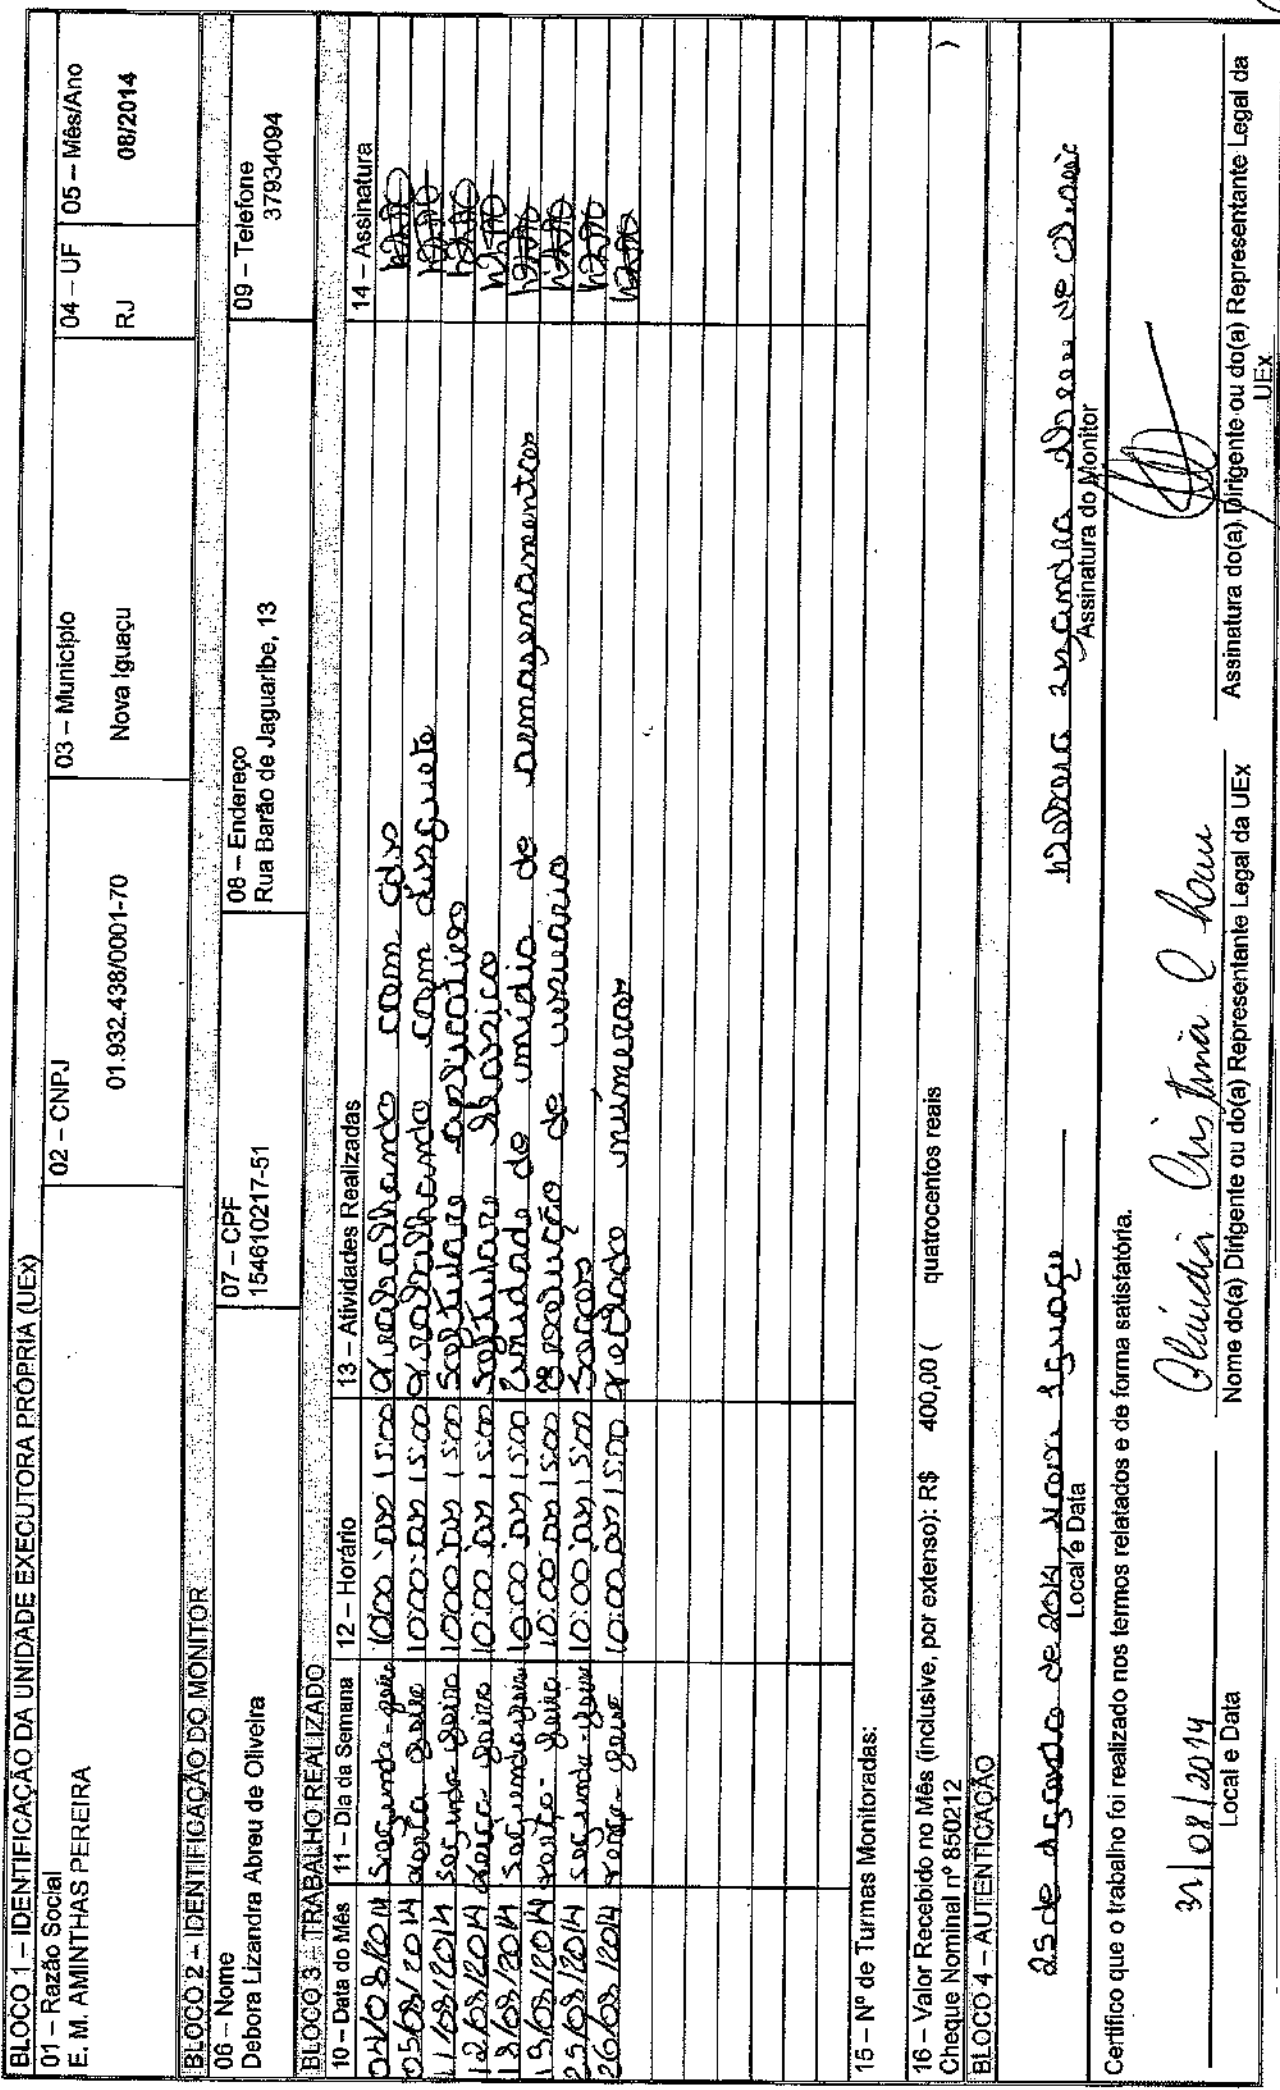 BLOCO 1 – IDENTIFICAÇÃO DA UNIDADE EXECUTORA PRÓPRIA (UEx)
01 – Razão Social 02 – CNPJ 03 – Município 04 – UF 05 – Mês/Ano
E. M. AMINTHAS PEREIRA 01.932.438/0001-70 Nova Iguaçu RJ 08/2014
BLOCO 2 – IDENTIFICAÇÃO DO MONITOR
06 – Nome 07 – CPF 08 – Endereço 09 – Telefone
Debora Lizandra Abreu de Oliveira 154610217-51 Rua Barão de Jaguaribe, 13 37934094
BLOCO 3 – TRABALHO REALIZADO
10 – Data do Mês 11 – Dia da Semana 12 – Horário 13 – Atividades Realizadas 14 – Assinatura
04/08/2014 segunda-feira 10:00 as 15:00 trabalhando com cd.s
05/08/2014 terça feira 10:00 as 15:00 trabalhando com disquete
11/08/2014 segunda-feira 10:00 as 15:00 Software aplicativo
12/08/2014 terça-feira 10:00 as 15:00 Software básico
18/08/2014 segunda-feira 10:00 as 15:00 Unidade de mídia de armazenamentos
19/08/2014 terça-feira 10:00 as 15:00 de usuário
25/08/2014 segunda-feira 10:00 as 15:00
26/08/2014 terça-feira 10:00 as 15:00 teclado números
15 – Nº de Turmas Monitoradas:
16 – Valor Recebido no Mês (inclusive, por extenso): R$ 400,00 ( quatrocentos reais )
Cheque Nominal nº 850212
BLOCO 4 – AUTENTICAÇÃO
25 de agosto de 2014, nova Iguaçu
Local e Data Assinatura do Monitor
Certifico que o trabalho foi realizado nos termos relatados e de forma satisfatória.
31/08/2014 Cláudia Cristina
Local e Data Nome do(a) Dirigente ou do(a) Representante Legal da UEx Assinatura do(a) Dirigente ou do(a) Representante Legal da
UEx